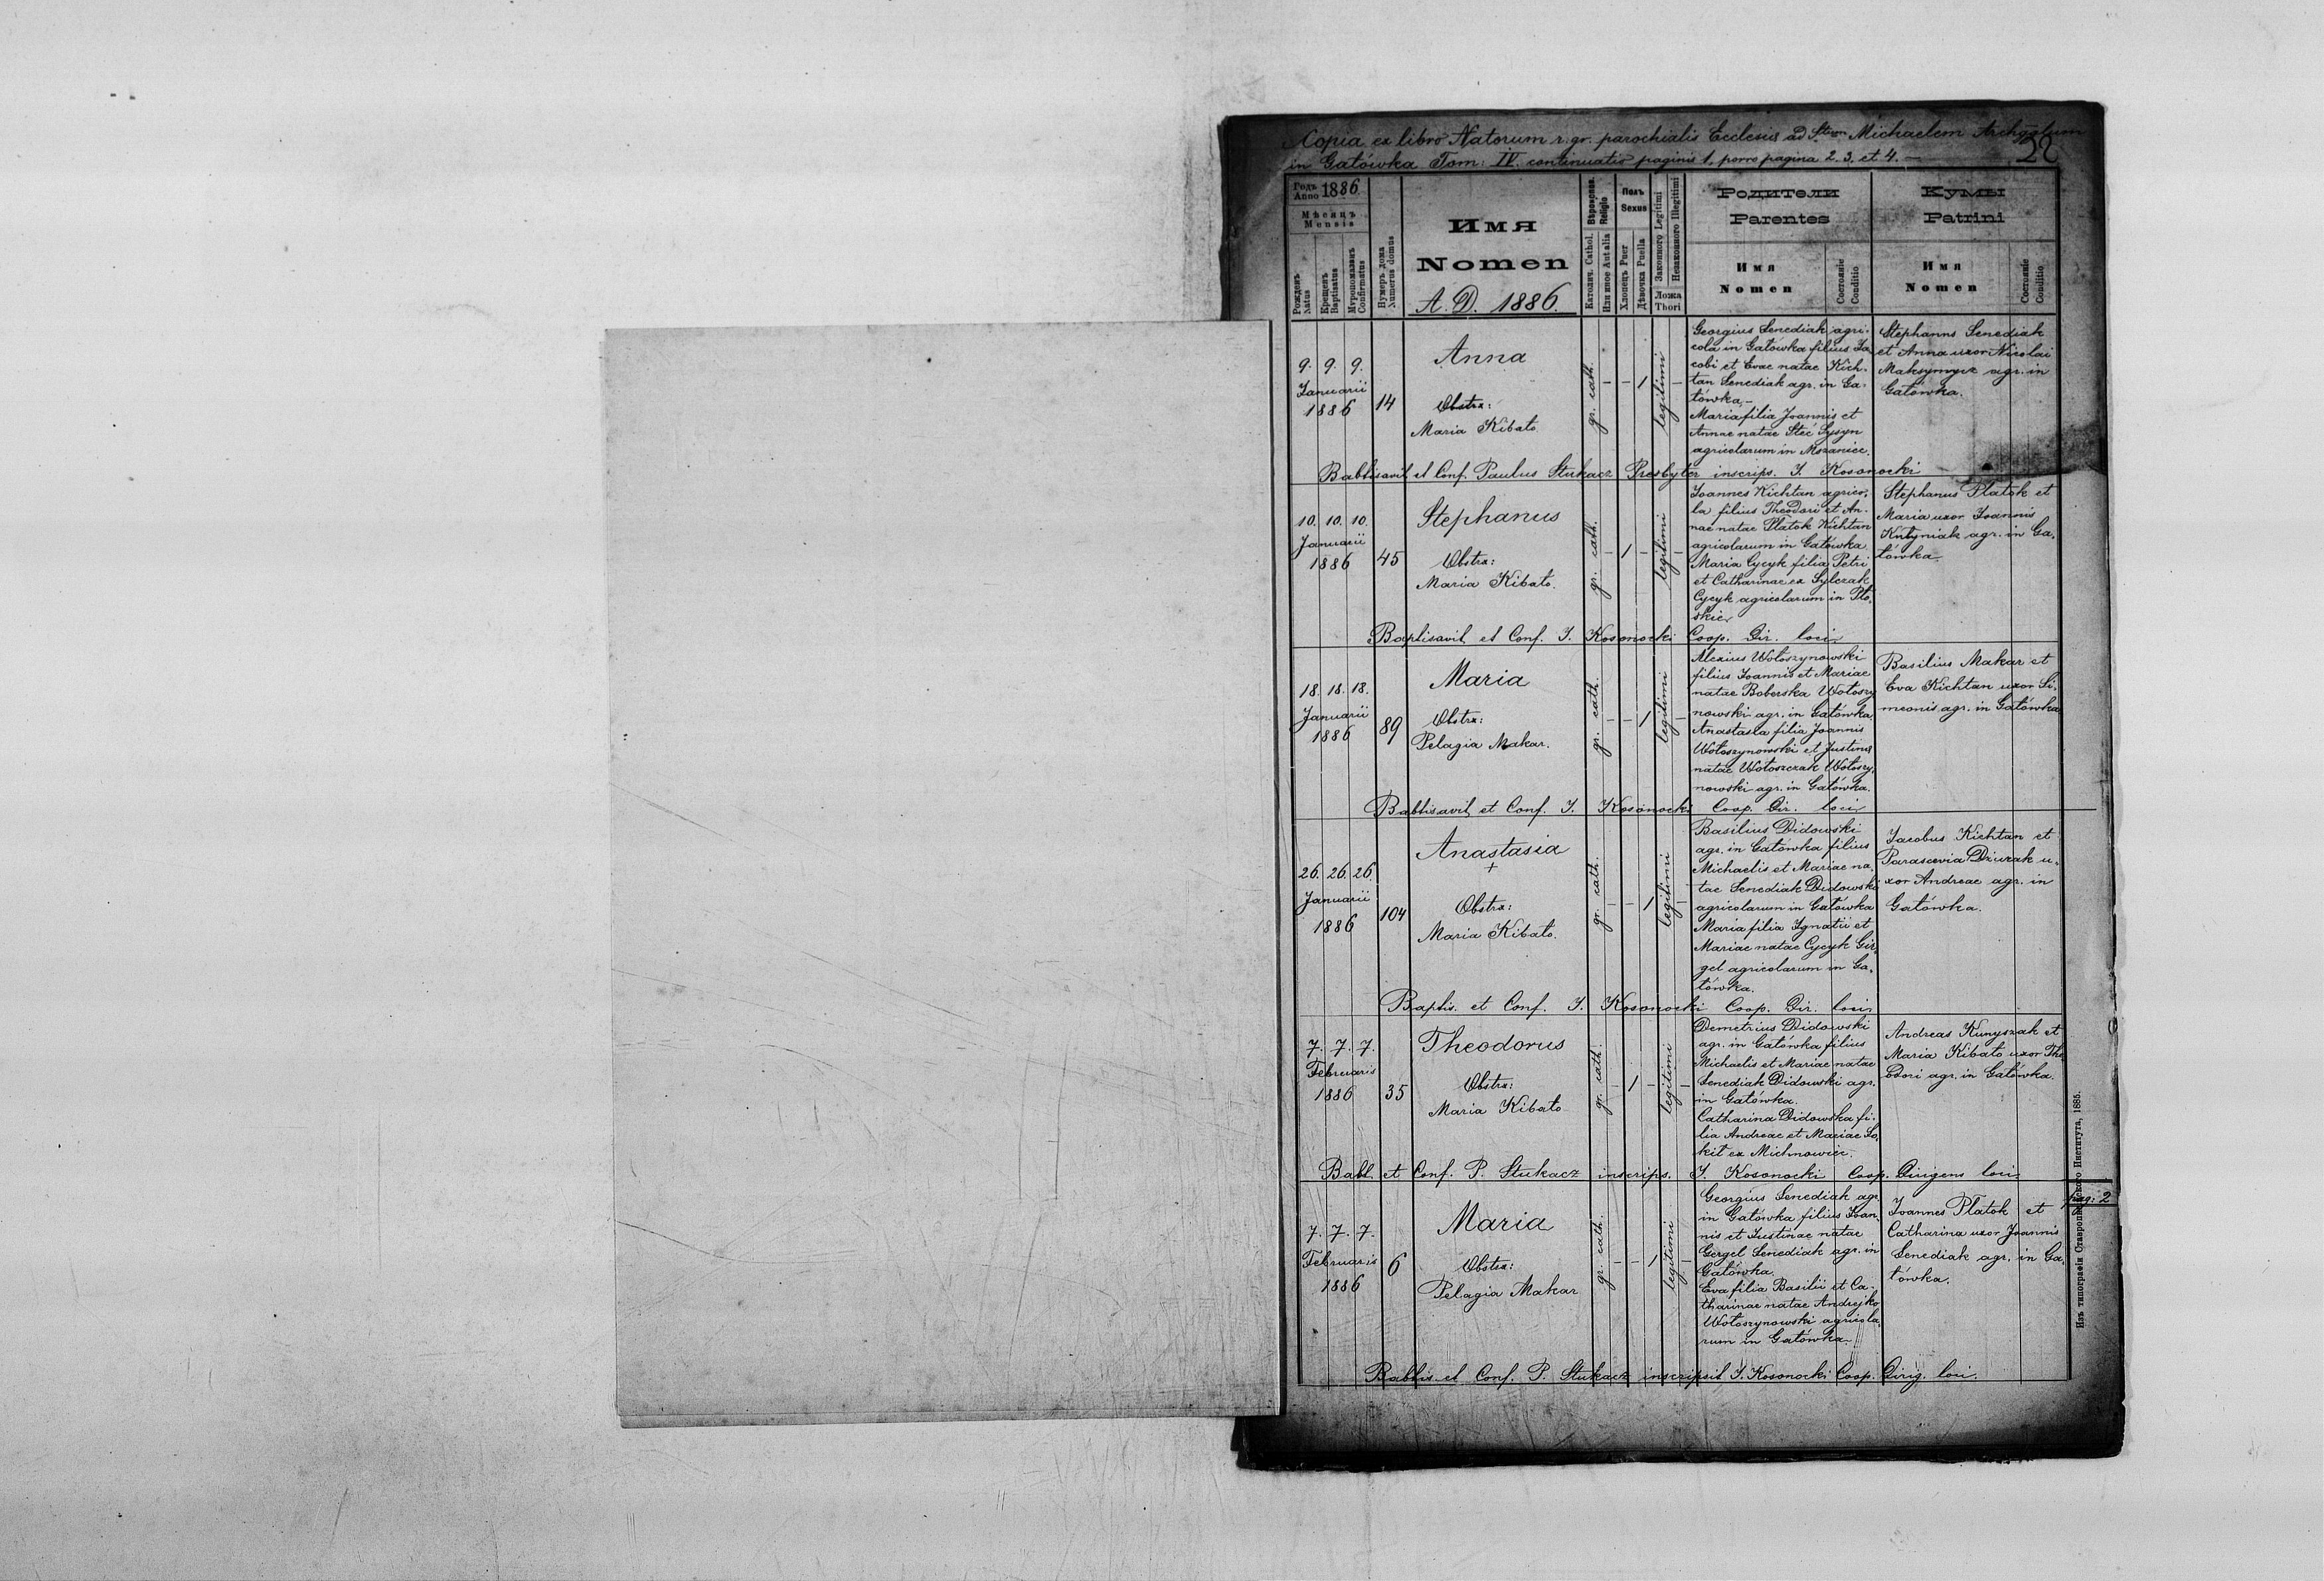 Copia ex libro Natorum r. gr. parochialis Ecclesiae ad Stum Michaelem Archgelum
in Gatówka Tom: IV. continuatio paginis 1, porro pagina 2. 3. et 4. —
22
Годъ
Anno 1886
Мѣсяцъ
Mensis
Рожденъ
Natus
Крещенъ
Baptisatus
Мѵропомазанъ
Confirmatus
Нумеръ дома
Numerus domus
Имя
Nomen
A. D. 1886.
Религiо
Religio
Католич. Cathol.
Или иное Aut alia
Полъ
Sexus
Хлопецъ Puer
Дѣвочка Puella
Законного Legitimi
Незаконного Illegitimi
Ложа
Thori
Родители
Parentes
Имя
Nomen
Состоянiе
Conditio
Кумы
Patrini
Имя
Nomen
Состоянiе
Conditio
9. 9. 9.
Januarii
1886
14
Anna
Obstrx:
Maria Kibato
gr. cath.
– – 1
legitimi
–
Georgius Senediak agri-
cola in Gatówka filius Ja-
cobi et Evae natae Kich-
tan Senediak agr. in Ga-
tówka –
Maria filia Joannis et
Annae natae Steć Sysyn
agricolarum in Mszaniec.
Stephanns Senediak
et Anna uxor Nicolai
Maksymycz agr. in
Gatówka.
Babtisavit et Conf. Paulus Stukacz Presbyter inscrips. J. Kosonocki
10. 10. 10.
Januarii
1886
45
Stephanus
Obstrx:
Maria Kibato.
gr. cath.
– 1 –
legitimi
–
Joannes Kichtan agrico-
la filius Theodori et An-
nae natae Platok Kichtan
agricolarum in Gatówka
Maria Cycyk filia Petri
et Catharinae ex Sylczak
Cycyk agricolarum in Pło-
skie
Stephanus Platok et
Maria uxor Joannis
Kutyniak agr. in Ga-
tówka
Baptisavit et Conf. J. Kosonocki Coop. Dir. loci
18. 18. 18.
Januarii
1886
89
Maria
Obstrx:
Pelagia Makar.
gr. cath.
– – 1
legitimi
–
Alexius Wołoszynowski
filius Joannis et Mariae
natae Boberska Wołoszy
nowski agr. in Gatówka.
Anastasia filia Joannis
Wołoszynowski et Justina
natae Wołoszczak Wołoszy-
nowski agr. in Gatówka.
Basilius Makar et
Eva Kichtan uxor Si-
meonis agr. in Gatówka
Babtisavit et Conf. J. Kosonocki Coop. Dir. loci
26. 26. 26.
Januarii
1886
104
Anastasia
+
Obstrx:
Maria Kibato.
gr. cath.
– – 1
legitimi
–
Basilius Didowski
agr. in Gatówka filius
Michaelis et Mariae na-
tae Senediak Didowski
agricolarum in Gatówka
Maria filia Ignatii et
Mariae natae Cycyk Gir-
gel agricolarum in Ga-
tówka.
Jacobus Kichtan et
Parascevia Dziurak u-
xor Andreae agr. in
Gatówka.
Baptis. et Conf. J. Kosonocki Coop. Dir. loci
7. 7. 7.
Februaris
1886
35
Theodorus
Obstrx:
Maria Kibato
gr. cath.
– 1 –
legitimi
–
Demetrius Didowski
agr. in Gatówka filius
Michaelis et Mariae natae
Senediak Didowski agr.
in Gatówka.
Catharina Didowska fi-
lia Andreae et Mariae So-
kit ex Michnowiec.
Andreas Kunyszak et
Maria Kibato uxor The-
odori agr. in Gatówka.
Babt. et Conf. P. Stukacz inscrips. J. Kosonocki Coop. Dirigens loci
pag: 2
7. 7. 7.
Februaris
1886
6
Maria
Obstrx:
Pelagia Makar
gr. cath.
– – 1
legitimi
–
Georgius Senediak agr.
in Gatówka filius Joan-
nis et Justinae natae
Gergel Senediak agr. in
Gatówka.
Eva filia Basilii et Ca-
tharinae natae Andrejko
Wołoszynowski agricola-
rum in Gatówka
Joannes Platok et
Catharina uxor Joannis
Senediak agr. in Ga-
tówka.
Babtis. et Conf. P. Stukacz inscripsit J. Kosonocki Coop. Dirig. loci.
Изъ типографiи Ставропигiйского Института, 1885.